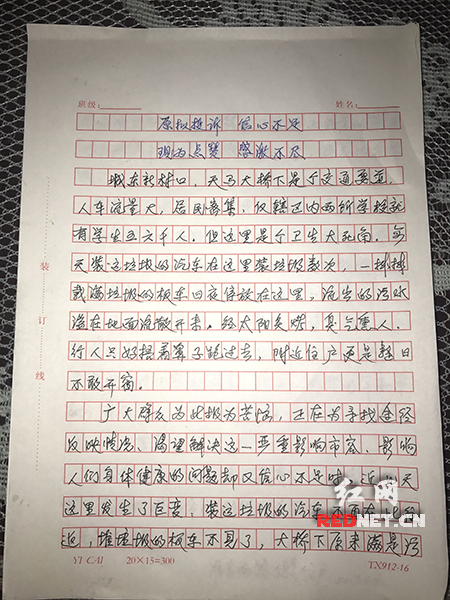 班级: 姓名:
原拟投诉 信心不足
现为点赞 感激不尽
城东新村口,天马大桥下是个交通要道,
人车流量大,居民密集,仅辖区内两所学校就
有学生五六千人。但这里是个卫生大死角,每
天装运垃圾的汽车在这里装垃圾数次,一排排
载满垃圾的板车日夜停放在这里,流出的污水
溢在地面流散开来。经太阳天晒,臭气熏人,
行人只好捂着鼻子跑过去,附近住户更是整日
不敢开窗。
广大群众为此极为苦恼,正在为寻找途径
反映情况、渴望解决这一严重影响市容、影响
人们身体健康的问题却又信心不足时,近 天
这里发生了巨变,装运垃圾的汽车不再
近,堆垃圾的板车不见了,大桥下原来满是污
装
订
线
红网
REDNET.CN
YI CAI 20×15=300 TX912-16